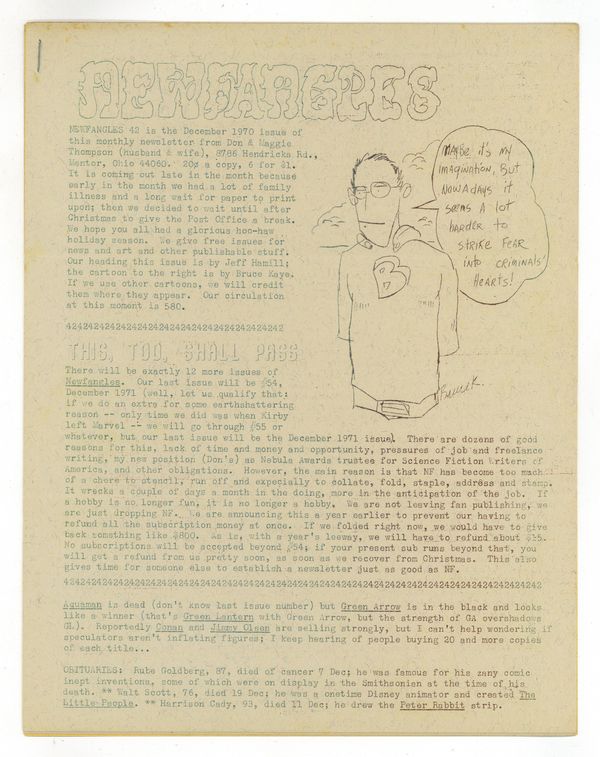 NEWFANGLES
NEWFANGLES 42 is the December 1970 issue of
this monthly newsletter from Don & Maggie
Thompson (husband & wife), 8786 Hendricks Rd.,
Mentor, Ohio 44060. 20¢ a copy, 6 for $1.
It is coming out late in the month because
early in the month we had a lot of family
illness and a long wait for paper to print
upon; then we decided to wait until after
Christmas to give the Post Office a break.
We hope you all had a glorious hoo-haw
holiday season. We give free issues for
news and art and other publishable stuff.
Our heading this issue is by Jeff Hamill;
the cartoon to the right is by Bruce Kaye.
If we use other cartoons, we will credit
them where they appear. Our circulation
at this moment is 580.
MAYBE it's my
imagination, But
NOWADAYS it
seems A lot
harder to
strike fear
into criminals'
hearts!
B
Bruce K.
4242424242424242424242424242424242424242
THIS, TOO, SHALL PASS
There will be exactly 12 more issues of
Newfangles. Our last issue will be #54,
December 1971 (well, let us qualify that:
if we do an extra for some earthshattering
reason -- only time we did was when Kirby
left Marvel -- we will go through #55 or
whatever, but our last issue will be the December 1971 issue). There are dozens of good
reasons for this, lack of time and money and opportunity, pressures of job and freelance
writing, my new position (Don's) as Nebula Awards trustee for Science Fiction Writers of
America, and other obligations. However, the main reason is that NF has become too much
of a chore to stencil, run off and expecially to collate, fold, staple, address and stamp.
It wrecks a couple of days a month in the doing, more in the anticipation of the job. If
a hobby is no longer fun, it is no longer a hobby. We are not leaving fan publishing, we
are just dropping NF. We are announcing this a year earlier to prevent our having to
refund all the subscription money at once. If we folded right now, we would have to give
back something like $800. As is, with a year's leeway, we will have to refund about $15.
No subscriptions will be accepted beyond #54; if your present sub runs beyond that, you
will get a refund from us pretty soon, as soon as we recover from Christmas. This also
gives time for someone else to establish a newsletter just as good as NF.
4242424242424242424242424242424242424242424242424242424242424242424242424242424242424242
Aquaman is dead (don't know last issue number) but Green Arrow is in the black and looks
like a winner (that's Green Lantern with Green Arrow, but the strength of GA overshadows
GL). Reportedly Conan and Jimmy Olsen are selling strongly, but I can't help wondering if
speculators aren't inflating figures; I keep hearing of people buying 20 and more copies
of each title...
OBITUARIES: Rube Goldberg, 87, died of cancer 7 Dec; he was famous for his zany comic
inept inventions, some of which were on display in the Smithsonian at the time of his
death. ** Walt Scott, 76, died 19 Dec; he was a onetime Disney animator and created The
Little People. ** Harrison Cady, 93, died 11 Dec; he drew the Peter Rabbit strip.